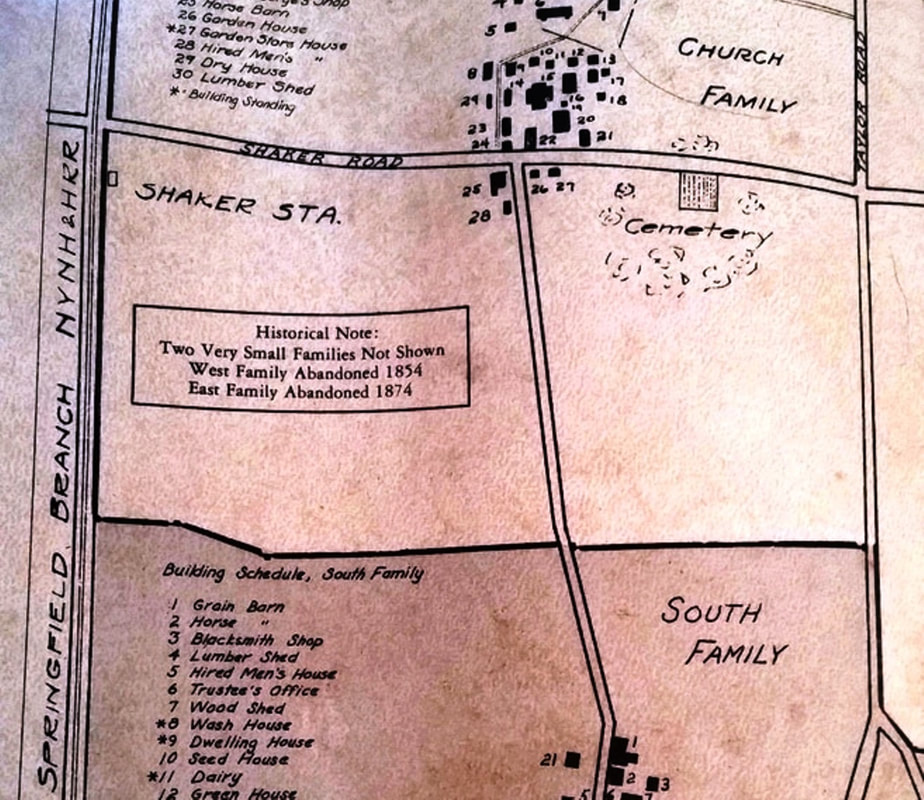 25 Horse Barn
26 Garden House
*27 Garden Store House
28 Hired Men's "
29 Dry House
30 Lumber Shed
*- Building Standing
CHURCH
FAMILY
TAYLOR ROAD
5
7
8
9
10
11
12
13
14
15
16
17
18
19
20
21
22
23
24
29
SHAKER ROAD
SHAKER STA.
25
26
27
28
Cemetery
SPRINGFIELD BRANCH NYNH&HRR
Historical Note:
Two Very Small Families Not Shown
West Family Abandoned 1854
East Family Abandoned 1874
Building Schedule, South Family
1 Grain Barn
2 Horse "
3 Blacksmith Shop
4 Lumber Shed
5 Hired Men's House
6 Trustee's Office
7 Wood Shed
*8 Wash House
*9 Dwelling House
10 Seed House
*11 Dairy
12 Green House
SOUTH
FAMILY
21
1
2
3
5
6
7